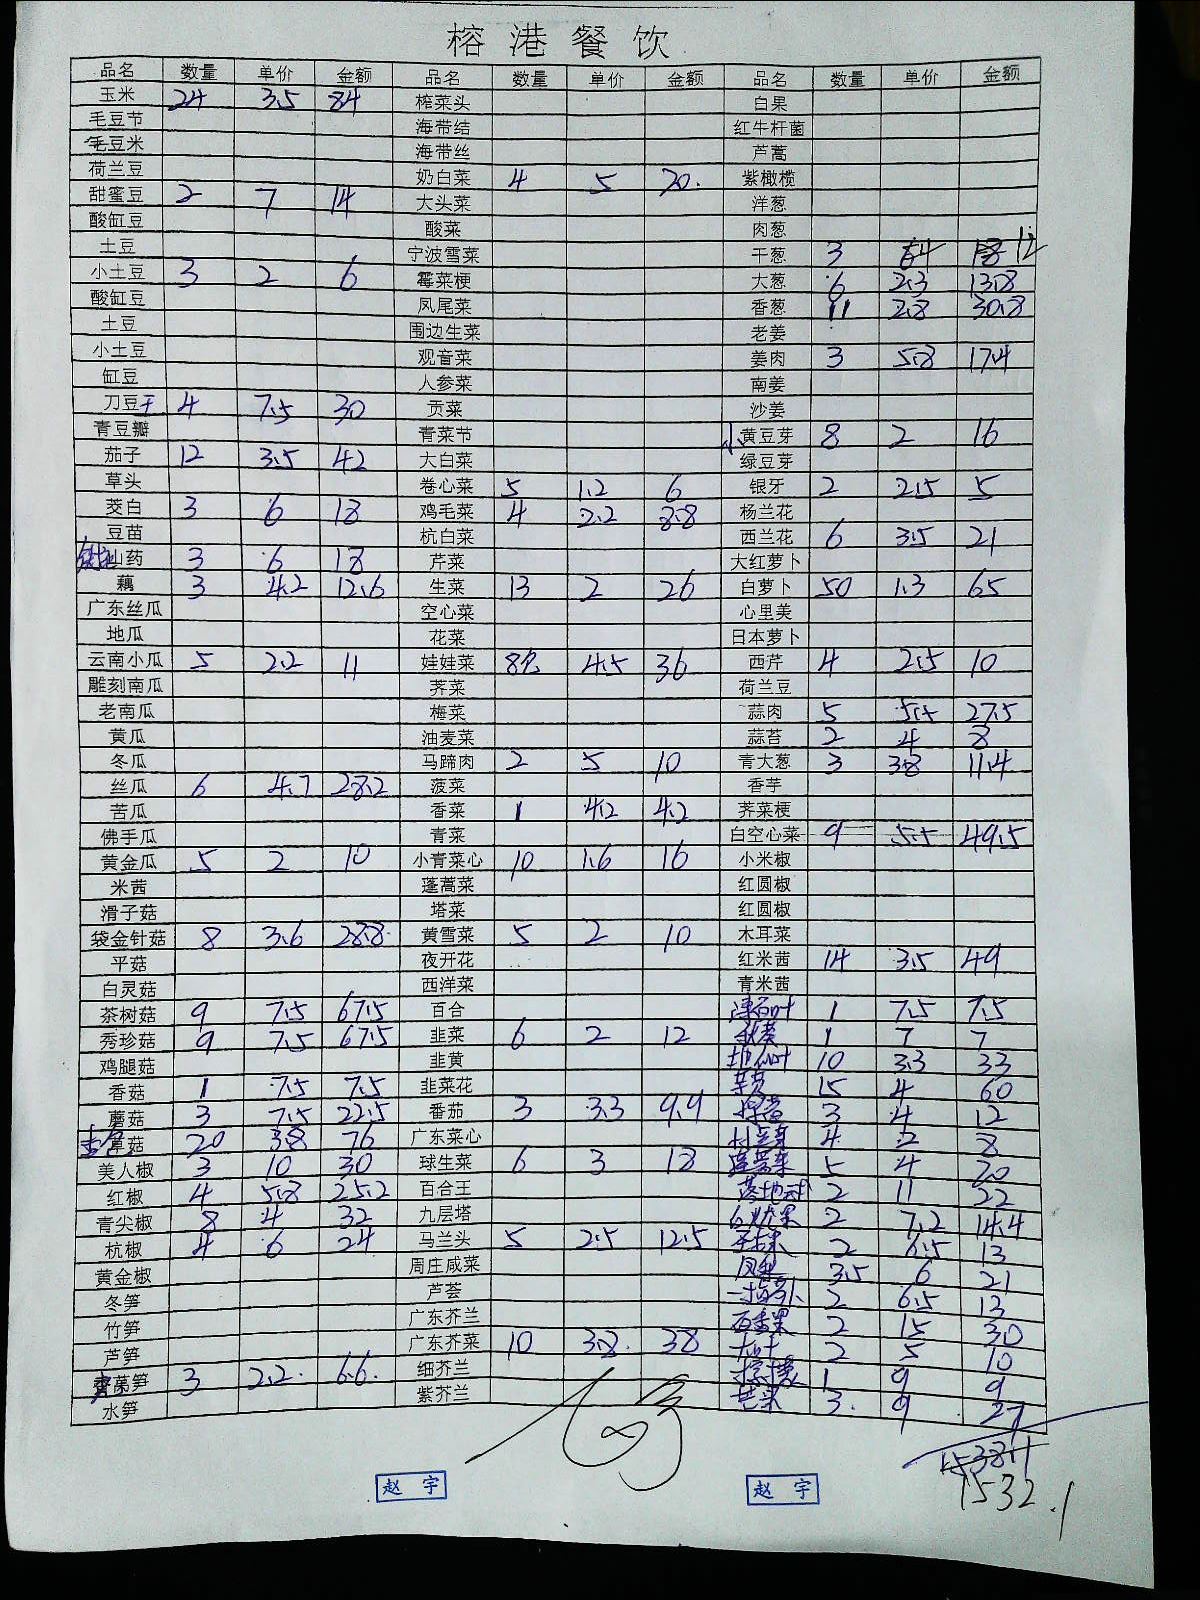 榕港餐饮
品名 数量 单价 金额 品名 数量 单价 金额 品名 数量 单价 金额
玉米 24 3.5 84 榨菜头 白果
毛豆节 海带结 红牛杆菌
毛豆米 海带丝 芦蒿
荷兰豆 奶白菜 4 5 20. 紫橄榄
甜蜜豆 2 7 14 大头菜 洋葱
酸缸豆 酸菜 肉葱
土豆 宁波雪菜 干葱 3 4 18 12
小土豆 3 2 6 霉菜梗 大葱 6 2.3 13.8
酸缸豆 凤尾菜 香葱 11 2.8 30.8
土豆 围边生菜 老姜
小土豆 观音菜 姜肉 3 5.8 17.4
缸豆 人参菜 南姜
刀豆王 4 7.5 30 贡菜 沙姜
青豆瓣 青菜节 小黄豆芽 8 2 16
茄子 12 3.5 42 大白菜 绿豆芽
草头 卷心菜 5 1.2 6 银牙 2 2.5 5
茭白 3 6 18 鸡毛菜 4 2.2 8.8 杨兰花
豆苗 杭白菜 西兰花 6 3.5 21
山药 3 6 18 芹菜 大红萝卜
藕 3 4.2 12.6 生菜 13 2 26 白萝卜 50 1.3 65
广东丝瓜 空心菜 心里美
地瓜 花菜 日本萝卜
云南小瓜 5 2.2 11 娃娃菜 8包 4.5 36 西芹 4 2.5 10
雕刻南瓜 荠菜 荷兰豆
老南瓜 梅菜 蒜肉 5 5.5 27.5
黄瓜 油麦菜 蒜苔 2 4 8
冬瓜 马蹄肉 2 5 10 青大葱 3 3.8 11.4
丝瓜 6 4.7 28.2 菠菜 香芋
苦瓜 香菜 1 4.2 4.2 荠菜梗
佛手瓜 青菜 白空心菜 9 5.5 49.5
黄金瓜 5 2 10 小青菜心 10 1.6 16 小米椒
米茜 蓬蒿菜 红圆椒
滑子菇 塔菜 红圆椒
袋金针菇 8 3.6 28.8 黄雪菜 5 2 10 木耳菜
平菇 夜开花 红米茜 14 3.5 49
白灵菇 西洋菜 青米茜
茶树菇 9 7.5 67.5 百合 1 7.5 7.5
秀珍菇 9 7.5 67.5 韭菜 6 2 12 秋葵 1 7 7
鸡腿菇 韭黄 10 3.3 33
香菇 1 7.5 7.5 韭菜花 15 4 60
蘑菇 3 7.5 22.5 番茄 3 3.3 9.9 3 4 12
草菇 20 3.8 76 广东菜心 4 2 8
美人椒 3 10 30 球生菜 6 3 18 5 4 20
红椒 4 5.8 25.2 百合王 2 11 22
青尖椒 8 4 32 九层塔 火龙果 2 7.2 14.4
杭椒 4 6 24 马兰头 5 2.5 12.5 2 6.5 13
黄金椒 周庄咸菜 凤梨 3.5 6 21
冬笋 芦荟 2 6.5 13
竹笋 广东芥兰 百香果 2 15 30
芦笋 广东芥菜 10 3.8 38 2 5 10
莴笋 3 2.2 6.6 细芥兰 柠檬 1 9 9
水笋 紫芥兰 芒果 3 9 27
1538.1
1532.1
赵宇 赵宇